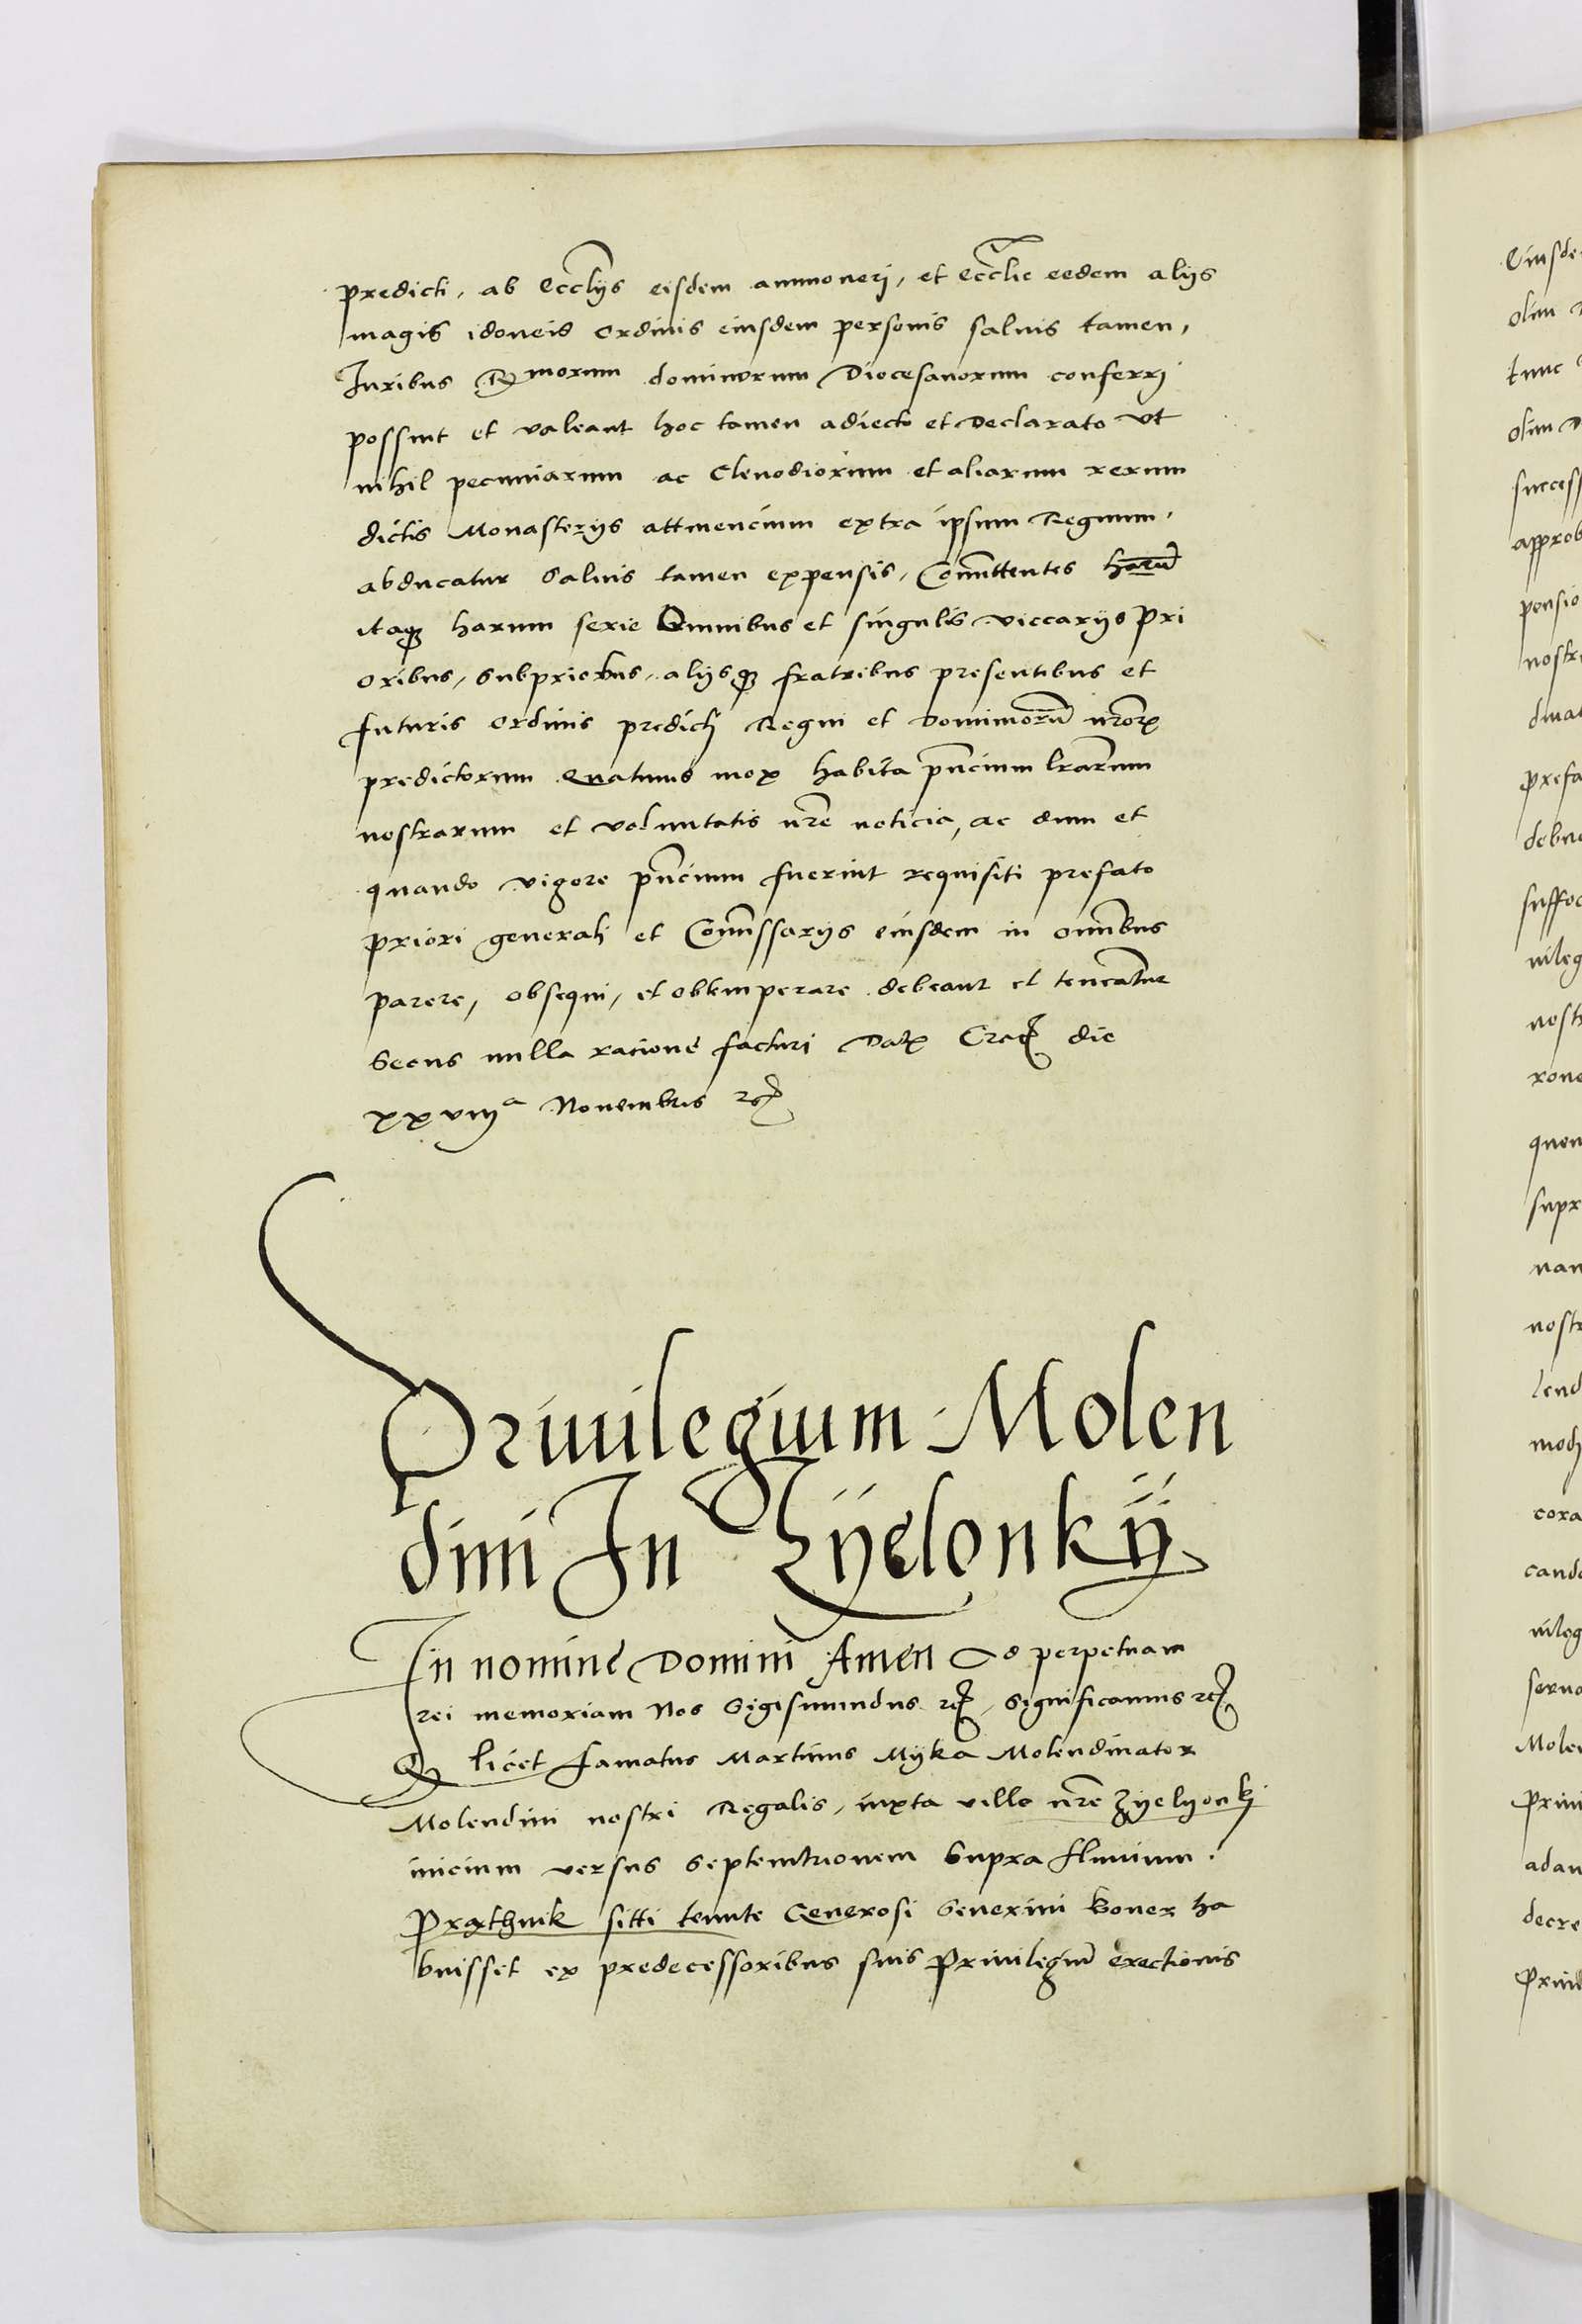 predicti, ab Eccliis eisdem ammoneri, et Ecclie eedem aliis
magis idoneis ordinis eiusdem personis saluis tamen,
Iuribus Rmorum dominorum Diocesanorum conferri
possint et valeant hoc tamen adiecto et Declarato vt
nihil pecuniarum ac Clenodiorum et aliarum rerum
dictis Monasterijs attinencium extra ipsum Regnum,
abducatur Saluis tamen expensis, Committentes haru
itaqz harum serie Omnibus et singulis viccarijs Pri
oribus, Subprioribus, alijsqz fratribus presentibus et
futuris ordinis predicti Regni et Dominiorum nrorz
predictorum Quatinus mox habita pncium lrarum
nostrarum et voluntatis nre noticia, ac dum et
quando vigore pncium fuerint requisiti prefato
priori generali et Comissarijs eiusdem in omnibus
parere, obsequi, et obtemperare debeant et teneantur
Secus nulla racione facturi Datz Crac die
xxviija Nouembris etc
Priuilegium Molen
dini In Zÿelonkÿ
In nomine Domini Amen Ad perpetuam
rei memoriam Nos Sigismundus etc, Significamus etc
Qz licet famatus Martinus Mÿka Molendinator
Molendini nostri Regalis, iuxta villa nre Zyelyonkj
inicium versus Septemtrionem Supra fluuium
Prathnik sitti tenute Generosi Seuerini Boner ha
buisset ex predecessoribus suis Priuilegium erectionis
Eiusde
olim
tunc
olim D
success
approb
pensio
nostr
duat
prefa
debue
suffoc
uileg
nostr
rone
quen
supr
nan
nostr
lend
modj
cora
cand
uileg
serua
Molen
Priui
adau
decre
Priuil